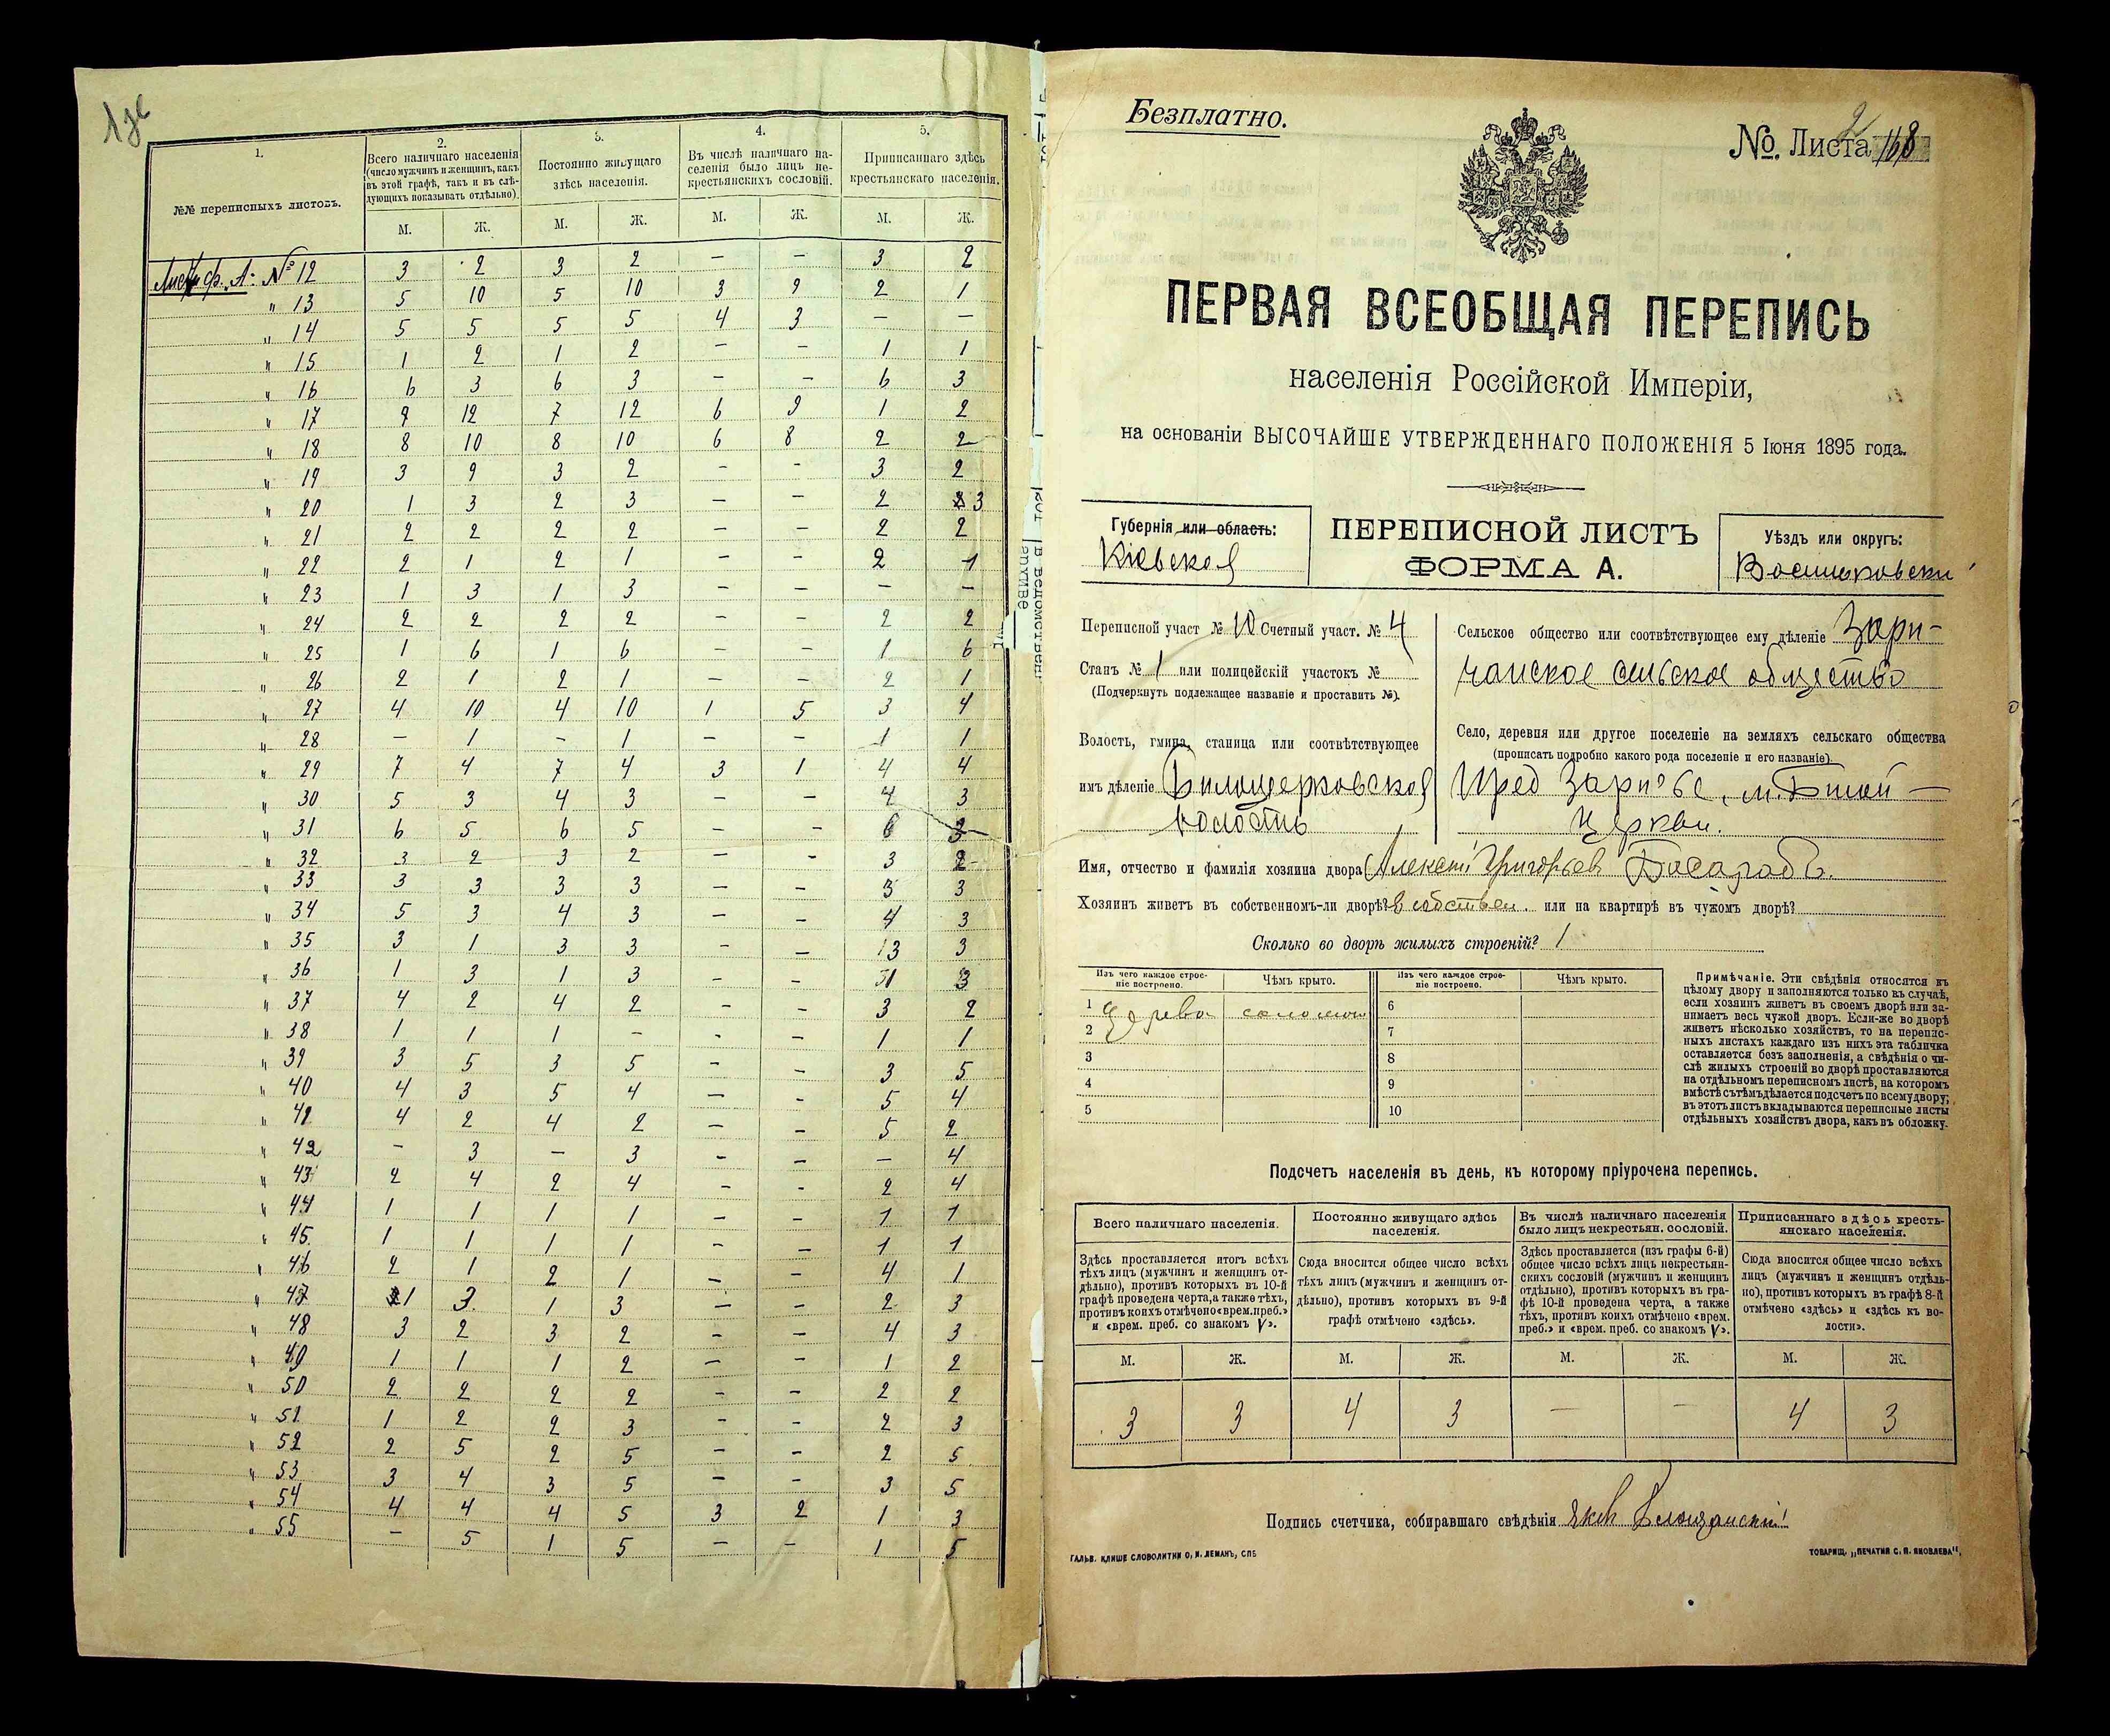 1.
2.
3.
4.
5.
№№ переписныхъ листовъ.
Всего наличнаго населенія
(число мужчинъ и женщинъ, какъ
въ этой графѣ, такъ и въ слѣ-
дующихъ показывать отдѣльно).
Постоянно живущаго
здѣсь населенія.
Въ числѣ наличнаго на-
селенія было лицъ не-
крестьянскихъ сословій.
Приписаннаго здѣсь
крестьянскаго населенія.
М. Ж. М. Ж. М. Ж. М. Ж.
ф. А: № 12 3 2 3 2 — — 3 2
" 13 5 10 5 10 3 9 2 1
" 14 5 5 5 5 4 3 — —
" 15 1 2 1 2 — — 1 1
" 16 6 3 6 3 — — 6 3
" 17 9 12 7 12 6 9 1 2
" 18 8 10 8 10 6 8 2 2
" 19 3 9 3 2 — — 3 2
" 20 1 3 2 3 — — 2 3
" 21 2 2 2 2 — — 2 2
" 22 2 1 2 1 — — 2 1
" 23 1 3 1 3 — — — —
" 24 2 2 2 2 — — 2 2
" 25 1 6 1 6 — — 1 6
" 26 2 1 2 1 — — 2 1
" 27 4 10 4 10 1 5 3 4
" 28 — 1 — 1 — — 1 1
" 29 7 4 7 4 3 1 4 4
" 30 5 3 4 3 — — 4 3
" 31 6 5 6 5 — — 6
" 32 3 2 3 2 — — 3 2
" 33 3 3 3 3 — — 3 3
" 34 5 3 4 3 — — 4 3
" 35 3 1 3 3 — — 3
" 36 1 3 1 3 — — 3
" 37 4 2 4 2 — — 3 2
" 38 1 1 1 — — — 1 1
" 39 3 5 3 5 — — 3 5
" 40 4 3 5 4 — — 5 4
" 4 2 4 2 — — 5 2
" 42 — 3 — 3 — — — 4
" 43 2 4 2 4 — — 2 4
" 44 1 1 1 1 — — 1 1
" 45 1 1 1 1 — — 1 1
" 46 2 1 2 1 — — 4 1
" 47 1 3 1 3 — — 2 3
" 48 3 2 3 2 — — 4 3
" 49 1 1 1 2 — — 1 2
" 50 2 2 2 2 — — 2 2
" 51 1 2 2 3 — — 2 3
" 52 2 5 2 5 — — 2 5
" 53 3 4 3 5 — — 3 5
" 54 4 4 4 5 3 2 1 3
" 55 — 5 1 5 — — 1 5
Безплатно.
№. Листа 168
2
ПЕРВАЯ ВСЕОБЩАЯ ПЕРЕПИСЬ
населенія Россійской Имперіи,
на основаніи ВЫСОЧАЙШЕ УТВЕРЖДЕННАГО ПОЛОЖЕНІЯ 5 Іюня 1895 года.
Губернія или область:
Кіевская
ПЕРЕПИСНОЙ ЛИСТЪ
ФОРМА А.
Уѣздъ или округъ:
Васильковскій
Переписной участ № 10 Счетный участ. № 4
Станъ № 1 или полицейскій участокъ №
(Подчеркнуть подлежащее названіе и проставить №).
Волость, гмина, станица или соотвѣтствующее
имъ дѣленіе Билоцерковская
волость
Сельское общество или соотвѣтствующее ему дѣленіе Зари-
чанское сельское общество
Село, деревня или другое поселеніе на земляхъ сельскаго общества
(прописать подробно какого рода поселеніе и его названіе).
Пред Заричье, м. Білой-
Церкви.
Имя, отчество и фамилія хозяина двора Алексѣй Григорьев Басарабъ.
Хозяинъ живетъ въ собственномъ-ли дворѣ? в собствен. или на квартирѣ въ чужомъ дворѣ?
Сколько во дворѣ жилыхъ строеній? 1
Изъ чего каждое строе-
ніе построено.
Чѣмъ крыто.
Изъ чего каждое строе-
ніе построено.
Чѣмъ крыто.
1 дерева соломой 6
2 7
3 8
4 9
5 10
Примѣчаніе. Эти свѣдѣнія относятся къ
цѣлому двору и заполняются только въ случаѣ,
если хозяинъ живетъ въ своемъ дворѣ или за-
нимаетъ весь чужой дворъ. Если-же во дворѣ
живетъ нѣсколько хозяйствъ, то на перепис-
ныхъ листахъ каждаго изъ нихъ эта табличка
оставляется безъ заполненія, а свѣдѣнія о чи-
слѣ жилыхъ строеній во дворѣ проставляются
на отдѣльномъ переписномъ листѣ, на которомъ
вмѣстѣ съ тѣмъ дѣлается подсчетъ по всему двору;
въ этотъ листъ вкладываются переписные листы
отдѣльныхъ хозяйствъ двора, какъ въ обложку.
Подсчетъ населенія въ день, къ которому пріурочена перепись.
Всего наличнаго населенія.
Здѣсь проставляется итогъ всѣхъ
тѣхъ лицъ (мужчинъ и женщинъ от-
дѣльно), противъ которыхъ въ 10-й
графѣ проведена черта, а также тѣхъ,
противъ коихъ отмѣчено «врем. преб.»
и «врем. преб. со знакомъ V».
Постоянно живущаго здѣсь
населенія.
Сюда вносится общее число всѣхъ
тѣхъ лицъ (мужчинъ и женщинъ от-
дѣльно), противъ которыхъ въ 9-й
графѣ отмѣчено «здѣсь».
Въ числѣ наличнаго населенія
было лицъ некрестьян. сословій.
Здѣсь проставляется (изъ графы 6-й)
общее число всѣхъ лицъ некрестьян-
скихъ сословій (мужчинъ и женщинъ
отдѣльно), противъ которыхъ въ гра-
фѣ 10-й проведена черта, а также
тѣхъ, противъ коихъ отмѣчено «врем.
преб.» и «врем. преб. со знакомъ V».
Приписаннаго здѣсь кресть-
янскаго населенія.
Сюда вносится общее число всѣхъ
лицъ (мужчинъ и женщинъ отдѣль-
но), противъ которыхъ въ графѣ 8-й
отмѣчено «здѣсь» и «здѣсь къ во-
лости».
М. Ж. М. Ж. М. Ж. М. Ж.
3 3 4 3 — — 4 3
Подпись счетчика, собиравшаго свѣдѣнія
ГАЛЬВ. КЛИШЕ СЛОВОЛИТНИ О. И. ЛЕМАНЪ, СПБ
ТОВАРИЩ. „ПЕЧАТНЯ С. П. ЯКОВЛЕВА",